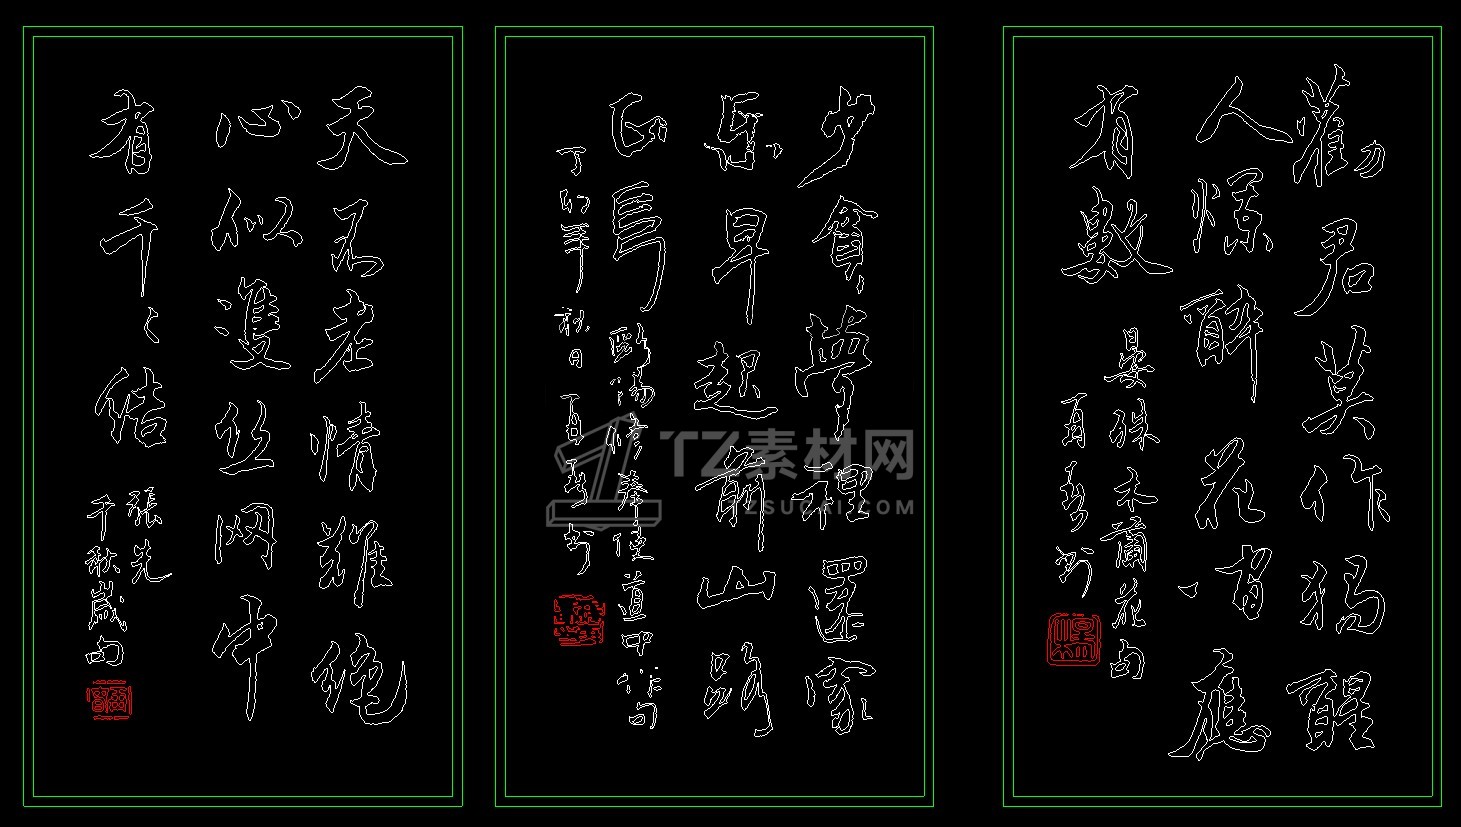 勸君莫作獨醒
人爛醉花間應
有數
晏殊木蘭花句
少貪夢裡還家
樂早起前山路
正長
歐陽修奉使道中作句
丁卯年秋日
天不老情難絶
心似雙丝网中
有千〻結
張先
千秋歲句
TZ素材网
TZSUCAI.COM